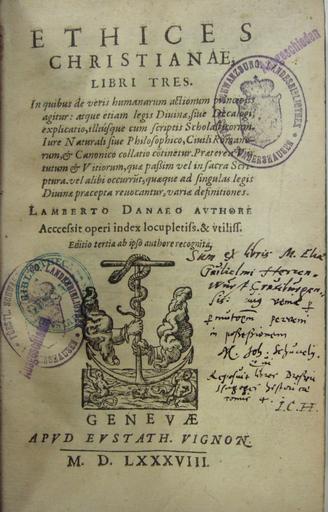 ETHICES
CHRISTIANAE,
LIBRI TRES.
In quibus de veris humanarum actionum principiis
agitur: atque etiam legis Divinæ, siue Decalogi
explicatio, illiúsque cum scriptis Scholasticorum,
Iure Naturali siue Philosophico, Ciuili Romano-
rum, & Canonico collatio continetur. Præterea Vir-
tutum & Vitiorum, quæ passim vel in sacra Scri-
ptura vel alibi occurrũt, quæque ad singulas legis
Diuinæ præcepta reuocantur, variæ definitiones.
LAMBERTO DANAEO AVTHORE
Acccessit operi index locupletiss. & vtiliss.
Editio tertia ab ipso authore recognita
Sum ex libris M. Eliæ
Guilielmi
possessionem
M. Joh.
tomis 4. I.C.H.
GENEVÆ
APVD EVSTATH. VIGNON.
M. D. LXXXVIII.
SCHWARZBURG. LANDESBIBLIOTHEK
SONDERSHAUSEN
Ausgeschieden
FÜRSTL. SCHWARZB.
LANDESBIBLIOTHEK
SONDERSHAUSEN
Ausgeschieden